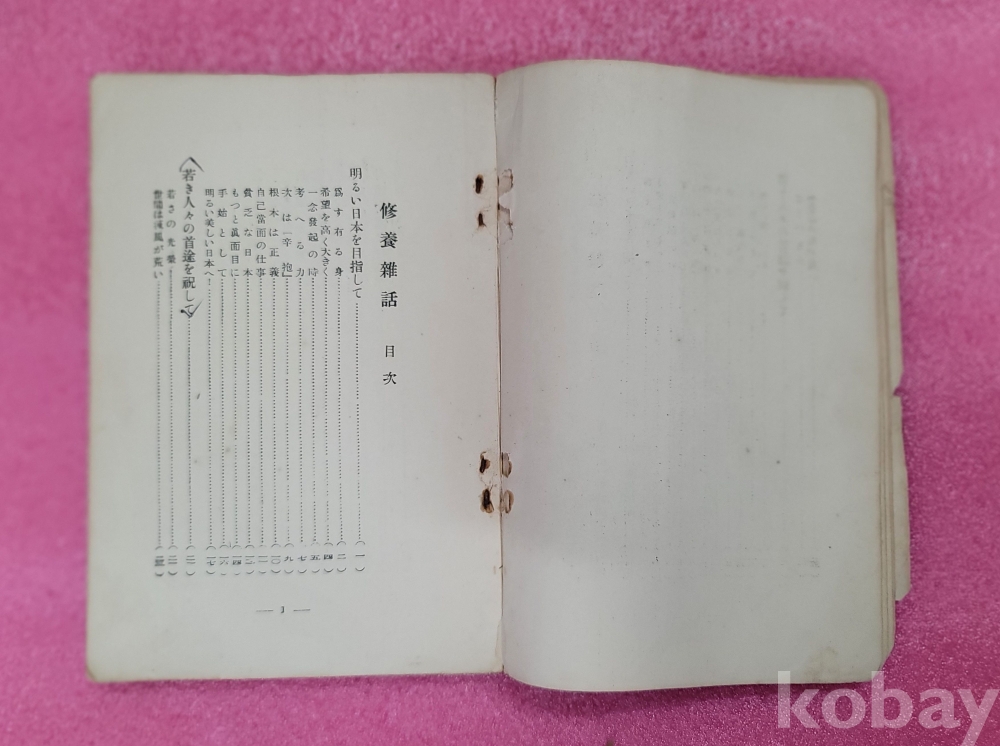 修養雜話 目次
明るい日本を目指して………(一)
爲す有る身………(二)
希望を高く大きく………(四)
一念發起の時………(五)
考へる力………(七)
次は「辛抱」………(九)
根本は正義………(一〇)
自己當面の仕事………(一一)
貧乏な日本………(一二)
もつと眞面目に………(一四)
手始として………(一六)
明るい美しい日本へ！………(一七)
若き人々の首途を祝して………
若さの光榮………
— 1 —
kobay